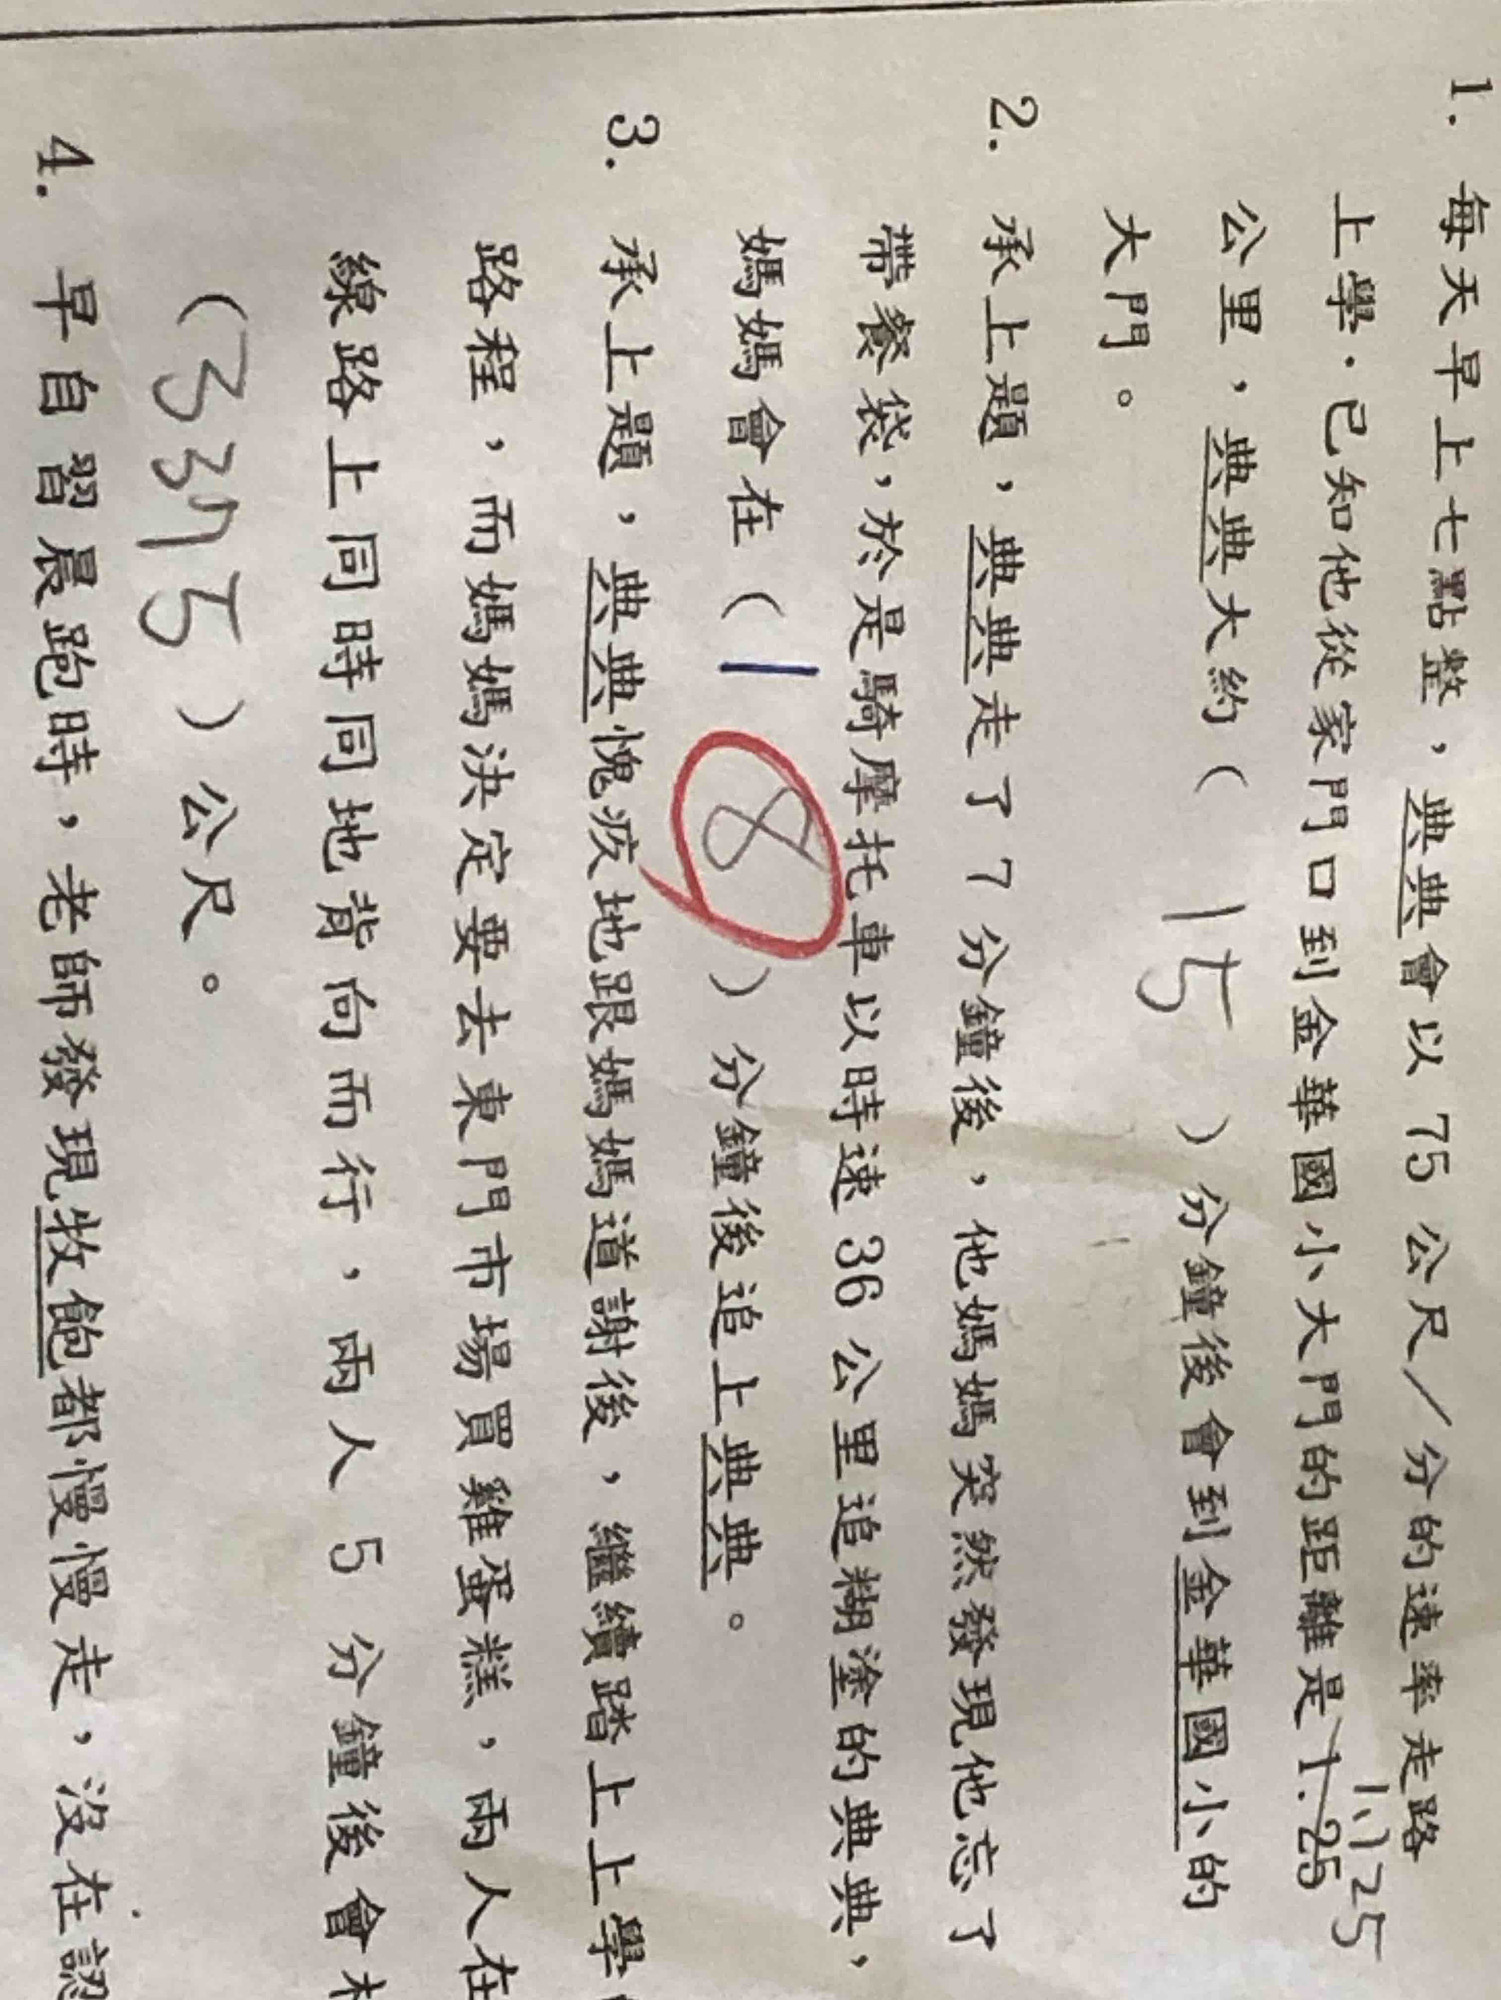 1. 每天早上七點整，典典會以 75 公尺／分的速率走路
1.125
上學．已知他從家門口到金華國小大門的距離是 1.25
公里，典典大約（ 15 ）分鐘後會到金華國小的
大門。
2. 承上題，典典走了 7 分鐘後，他媽媽突然發現他忘了
帶餐袋，於是騎摩托車以時速 36 公里追糊塗的典典，
媽媽會在（ 1 8 ）分鐘後追上典典。
3. 承上題，典典愧疚地跟媽媽道謝後，繼續踏上上學
路程，而媽媽決定要去東門市場買雞蛋糕，兩人在
線路上同時同地背向而行，兩人 5 分鐘後會相
（3375）公尺。
4. 早自習晨跑時，老師發現牧飽都慢慢走，沒在認